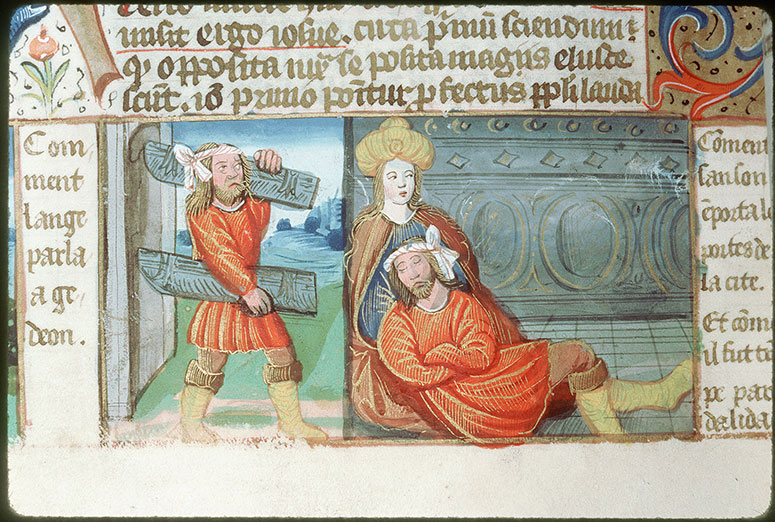 misit ergo iosue. circa pmu sciendum
q opposita iuxta se posita magis elusce
scut. io primo ponitur pfectus ppli lauda
Com
ment
lange
parla
a ge
deon.
Coment
sanson
eporta le
portes de
la cite.
Et com
il fut
pe par
dalida